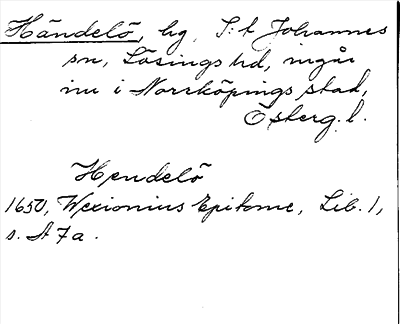 Händelö, hg, S:t Johannes
sn, Lösings hd, ingår
nu i Norrköpings stad,
Österg. l.
Hendelö
1650, Wexionius Epitome, Lib. 1,
s. A 7 a.